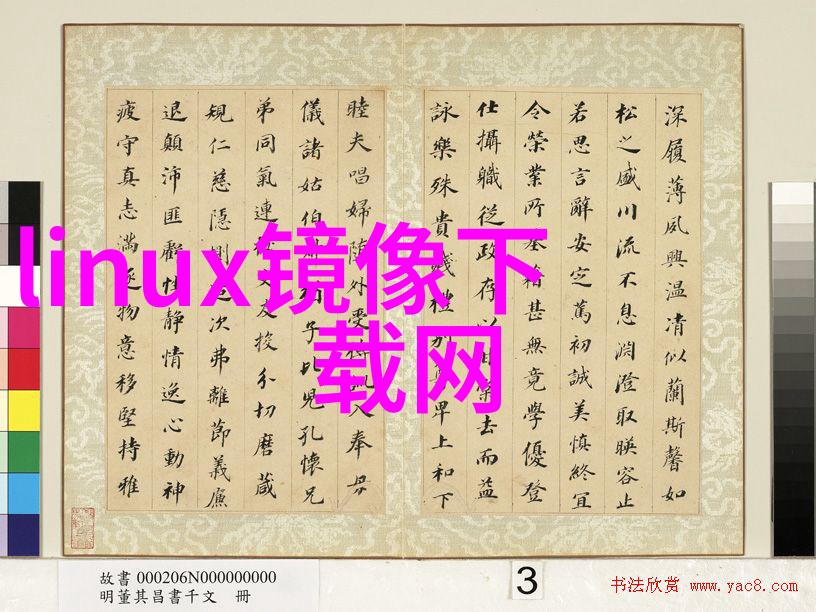 深履薄夙興温凊似蘭斯馨如
松之盛川流不息淵澄取暎容止
若思言辭安定篤初誠美慎終宜
令榮業所基籍甚無竟學優登
仕攝職從政存以甘棠去而益
詠樂殊貴賤禮別尊卑上和下
睦夫唱婦隨外受傅訓入奉母
儀諸姑伯叔猶子比兒孔懷兄
弟同氣連枝交友投分切磨葴
規仁慈隱惻造次弗離節義廉
退顛沛匪虧性靜情逸心動神
疲守真志滿逐物意移堅持雅
linux镜像下
载网
故書 000206N000000000
明董其昌書千文 冊
3
书法欣赏 www.yac8.com